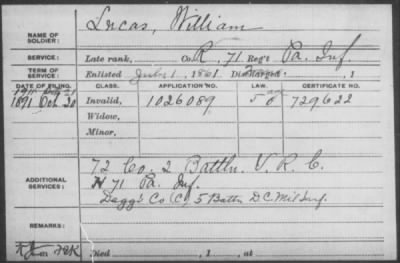 Lucas, William
NAME OF SOLDIER:
SERVICE: Late rank, Co. R, 71 Reg't Pa. Inf.
TERM OF SERVICE: Enlisted July 1, 1861. Discharged , 1
DATE OF FILING. CLASS. APPLICATION NO. LAW. CERTIFICATE NO.
1891 Oct. 20 Invalid, 1026089 729622
Widow,
Minor,
72 Co. 2 Battln. V. R. C.
ADDITIONAL SERVICES: H 71 Pa. Inf.
Co (C) 5 Battn D.C. Mil Inf.
REMARKS:
Died , 1 , at